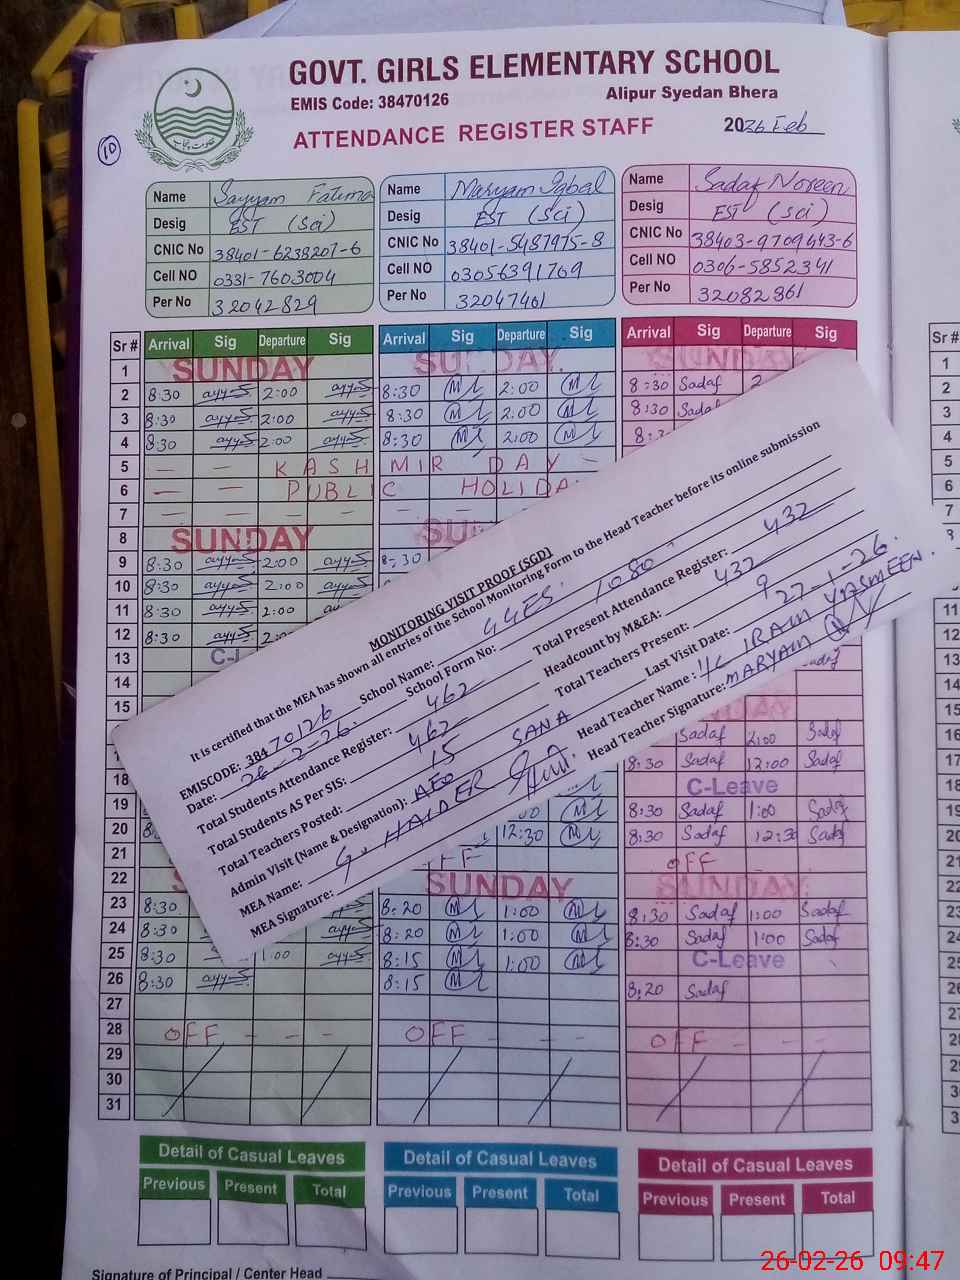 GOVT. GIRLS ELEMENTARY SCHOOL
EMIS Code: 38470126 Alipur Syedan Bhera
ATTENDANCE REGISTER STAFF 2026 Feb
10
Name Sayyam Fatima Name Maryam Iqbal Name Sadaf Noreen
Desig EST (Sci) Desig EST (Sci) Desig EST (Sci)
CNIC No 38401-6238207-6 CNIC No 38401-5487975-8 CNIC No 38403-9709443-6
Cell NO 0331-7603004 Cell NO 03056391769 Cell NO 0306-5852341
Per No 32042829 Per No 32047461 Per No 32082861
Sr # Arrival Sig Departure Sig Arrival Sig Departure Sig Arrival Sig Departure Sig
1 SUNDAY SUNDAY SUNDAY 1
2 8:30 2:00 8:30 2:00 8:30 Sadaf 2 2
3 8:30 2:00 8:30 2:00 8:30 Sadaf 3
4 8:30 2:00 8:30 2:00 8:3 4
5 — — KASHMIR DAY — 5
6 — — PUBLIC HOLIDA 6
7 — — — — — — 7
8 SUNDAY SU 8
9 8:30 2:00 8:30
10 8:30 2:00
11 8:30 2:00 11
12 8:30 2: 12
13 C-L 13
14 14
15 15
16 Sadaf 2:00 Sadaf 16
8:30 Sadaf 12:00 Sadaf 17
18 C-Leave 18
19 8:30 Sadaf 1:00 Sadaf 19
20 12:30 8:30 Sadaf 12:30 Sadaf 20
21 FF OFF 21
22 SUNDAY SUNDAY 22
23 8:30 8:20 1:00 8:30 Sadaf 1:00 Sadaf 23
24 8:30 8:20 1:00 8:30 Sadaf 1:00 Sadaf 24
25 8:30 1:00 8:15 1:00 C-Leave 25
26 8:30 8:15 8:20 Sadaf 26
27 27
28 OFF - - - OFF - - - OFF - - - 28
29
30
31
MONITORING VISIT PROOF (SGD)
It is certified that the MEA has shown all entries of the School Monitoring Form to the Head Teacher before its online submission
EMISCODE: 38470126 School Name: GGES.
Date: 26-2-26. School Form No: 1080
Total Students Attendance Register: 462 Total Present Attendance Register: 432
Total Students AS Per SIS: 462 Headcount by M&EA: 432
Total Teachers Posted: 15 Total Teachers Present: 9
Admin Visit (Name & Designation): AEO SANA Last Visit Date: 27-1-26.
MEA Name: G. HAIDER Head Teacher Name: I/C IRAM YASMEEN.
MEA Signature: Head Teacher Signature: MARYAM
Detail of Casual Leaves Detail of Casual Leaves Detail of Casual Leaves
Previous Present Total Previous Present Total Previous Present Total
Signature of Principal / Center Head
26-02-26 09:47